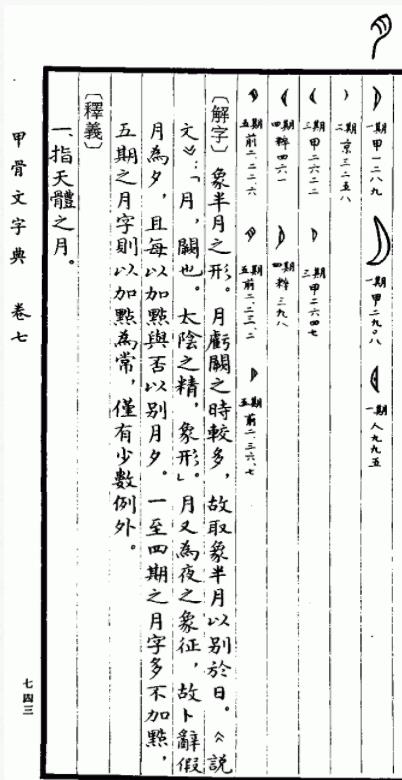 一期 甲一二八九 一期 甲二九〇八 一期 人九九五
二期 京三二五八
三期 甲二六二二 三期 甲二六四七
四期 粹四六一 四期 粹三九八
五期 前二、二二、六 五期 前二、二三、二 五期 前二、三六、七
〔解字〕象半月之形。月虧闕之時較多，故取象半月以别於日。《説
文》：「月，闕也。太陰之精，象形。」月又為夜之象征，故卜辭假
月為夕，且每以加點與否以别月夕。一至四期之月字多不加點，
五期之月字則以加點為常，僅有少數例外。
〔釋義〕
一、指天體之月。
甲骨文字典 卷七
七四三